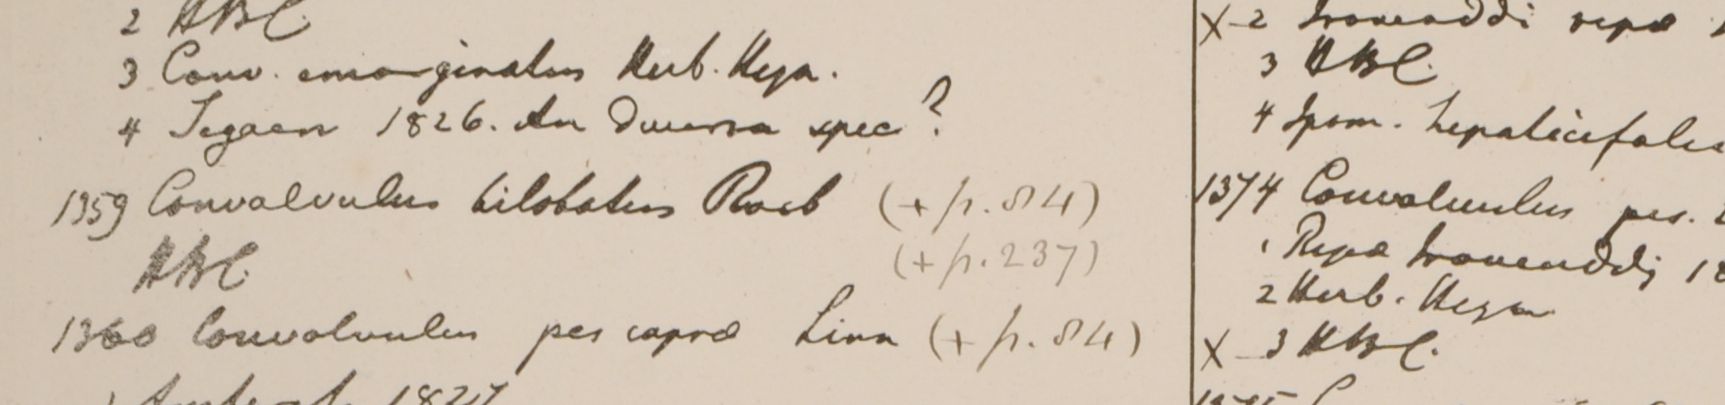 2 HBC.
3 Conv. emarginatus Herb. Heyn.
4 Segaen 1826. An diversa spec?
1359 Convolvulus bilobatus Roxb (+ p. 84)
HBC. (+ p. 237)
1360 Convolvulus pes caprae Linn (+ p. 84)
1 1827
X 2 Irawaddi ripae
3 HBC.
4 Ipom. hepaticifolia
1374 Convolvulus pes.
1 Ripae Irawaddi 18
2 Herb. Heyn
X 3 HBC.
1375 C